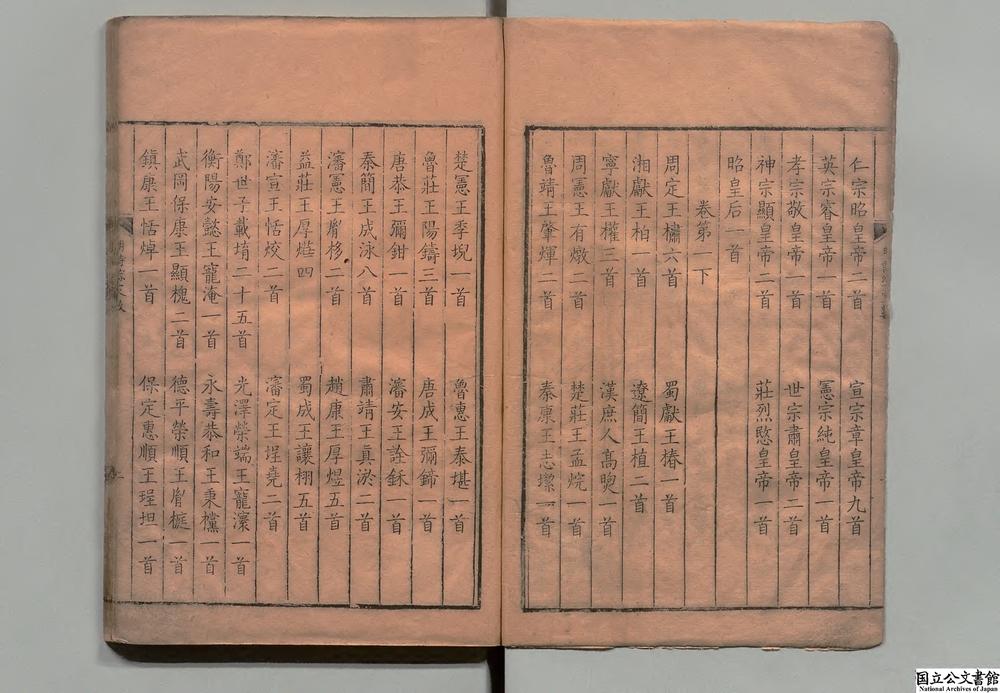 仁宗昭皇帝二首　宣宗章皇帝九首
英宗睿皇帝一首　憲宗純皇帝一首
孝宗敬皇帝一首　世宗肅皇帝二首
神宗顯皇帝二首　莊烈愍皇帝一首
昭皇后一首
卷第一下
周定王橚六首　蜀獻王椿一首
湘獻王柏一首　遼簡王植二首
寧獻王權三首　漢庶人高煦一首
周憲王有燉二首　楚莊王孟烷一首
魯靖王肇煇二首　秦康王志一首
楚憲王季堄一首　魯惠王泰堪一首
魯莊王陽鑄三首　唐成王彌鍗一首
唐恭王彌鉗一首　瀋安王詮鉌一首
秦簡王成泳八首　肅靖王眞淤二首
瀋憲王胤栘二首　趙康王厚煜五首
益莊王厚四　蜀成王讓栩五首
瀋宣王恬烄二首　瀋定王珵堯二首
鄭世子載堉二十五首　光澤榮端王寵瀤一首
衡陽安懿王寵淹一首　永壽恭和王秉欓一首
武岡保康王顯槐二首　德平榮順王胤榳一首
鎮康王恬焯一首　保定惠順王珵坦一首
国立公文書館
National Archives of Japan